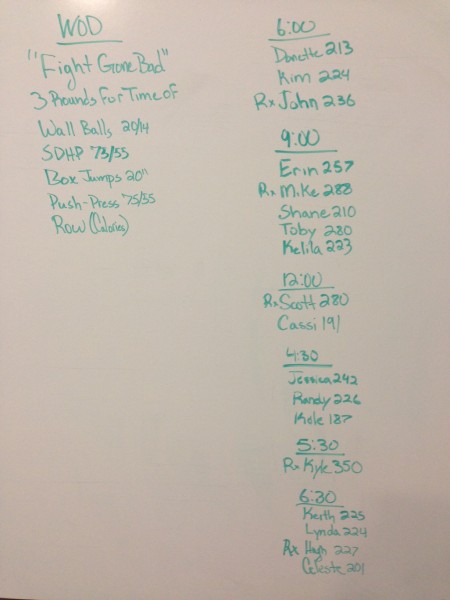 WOD
"Fight Gone Bad"
3 Rounds For Time of
Wall Balls 20/14
SDHP 75/55
Box Jumps 20"
Push-Press 75/55
Row (Calories)
6:00
Donette 213
Kim 224
Rx John 236
9:00
Erin 257
Rx Mike 288
Shane 210
Toby 280
Kelila 223
12:00
Rx Scott 280
Cassi 191
4:30
Jessica 242
Randy 226
Kole 187
5:30
Rx Kyle 350
6:30
Keith 225
Lynda 224
Rx Hugh 227
Celeste 201